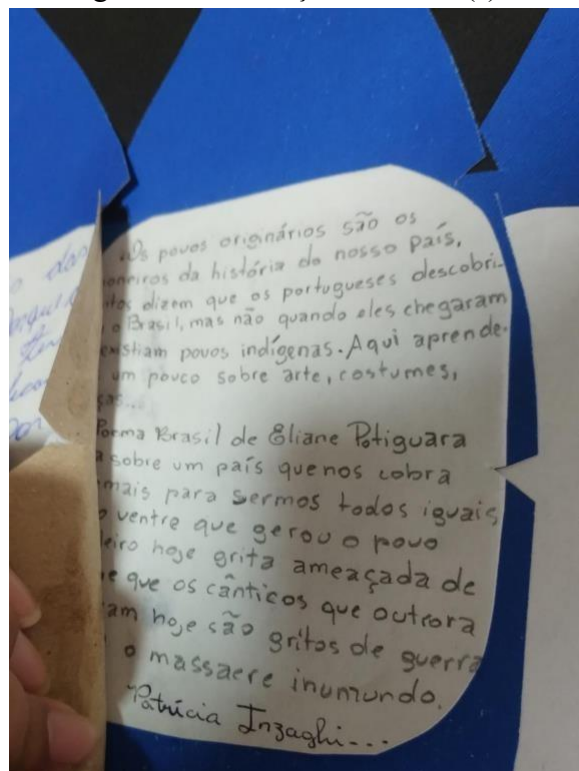 Os povos originários são os
oneiros da história do nosso país,
tos dizem que os portugueses descobri-
o Brasil, mas não quando eles chegaram
existiam povos indígenas. Aqui aprende-
um pouco sobre arte, costumes,
ças...
Poema Brasil de Eliane Potiguara
a sobre um país que nos cobra
mais para sermos todos iguais
o ventre que gerou o povo
leiro hoje grita ameaçada de
e que os cânticos que outrora
am hoje são gritos de guerra
o massacre inumundo.
Patrícia Inzaghi...